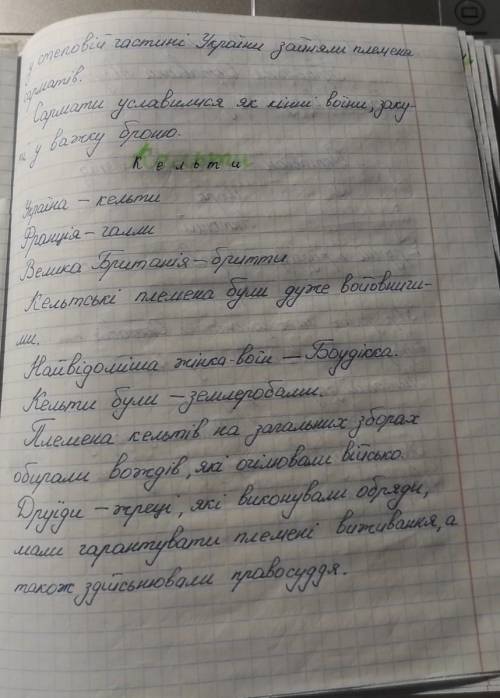 у степовій частині України зайняли племена
сарматів.
Сармати уславилися як кінні воїни, заку
ті у важку броню.
Кельти
Україна – кельти
Франція – галли
Велика Британія – бритти
Кельтські племена були дуже войовничи-
ми.
Найвідоміша жінка-воїн – Боудікка.
Кельти були – землеробами.
Племена кельтів на загальних зборах
обирали вождів, які очілювали військо.
Друїди – жреці, які виконували обряди,
мали гарантувати племені виживання, а
також здійсьнювали правосуддя.